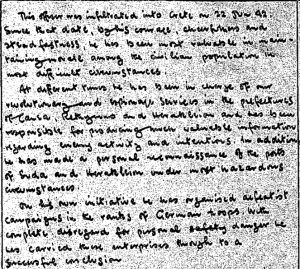 This officer was infiltrated into Crete on 22 Jun 42.
Since that date, by his courage, cheerfulness and
steadfastness, he has been most valuable in main-
taining morale among the civilian population in
most difficult circumstances.
At different times he has been in charge of our
revolutionary and espionage services in the prefectures
of Canea, Rethymnon and Heraklion and has been
responsible for producing much valuable information
regarding enemy activity and intentions. In addition
he has made a personal reconnaissance of the ports
of Suda and Heraklion under most hazardous
circumstances.
On his own initiative he has organised defeatist
campaigns in the ranks of German troops with
complete disregard for personal safety danger he
has carried these enterprises through to a
successful conclusion